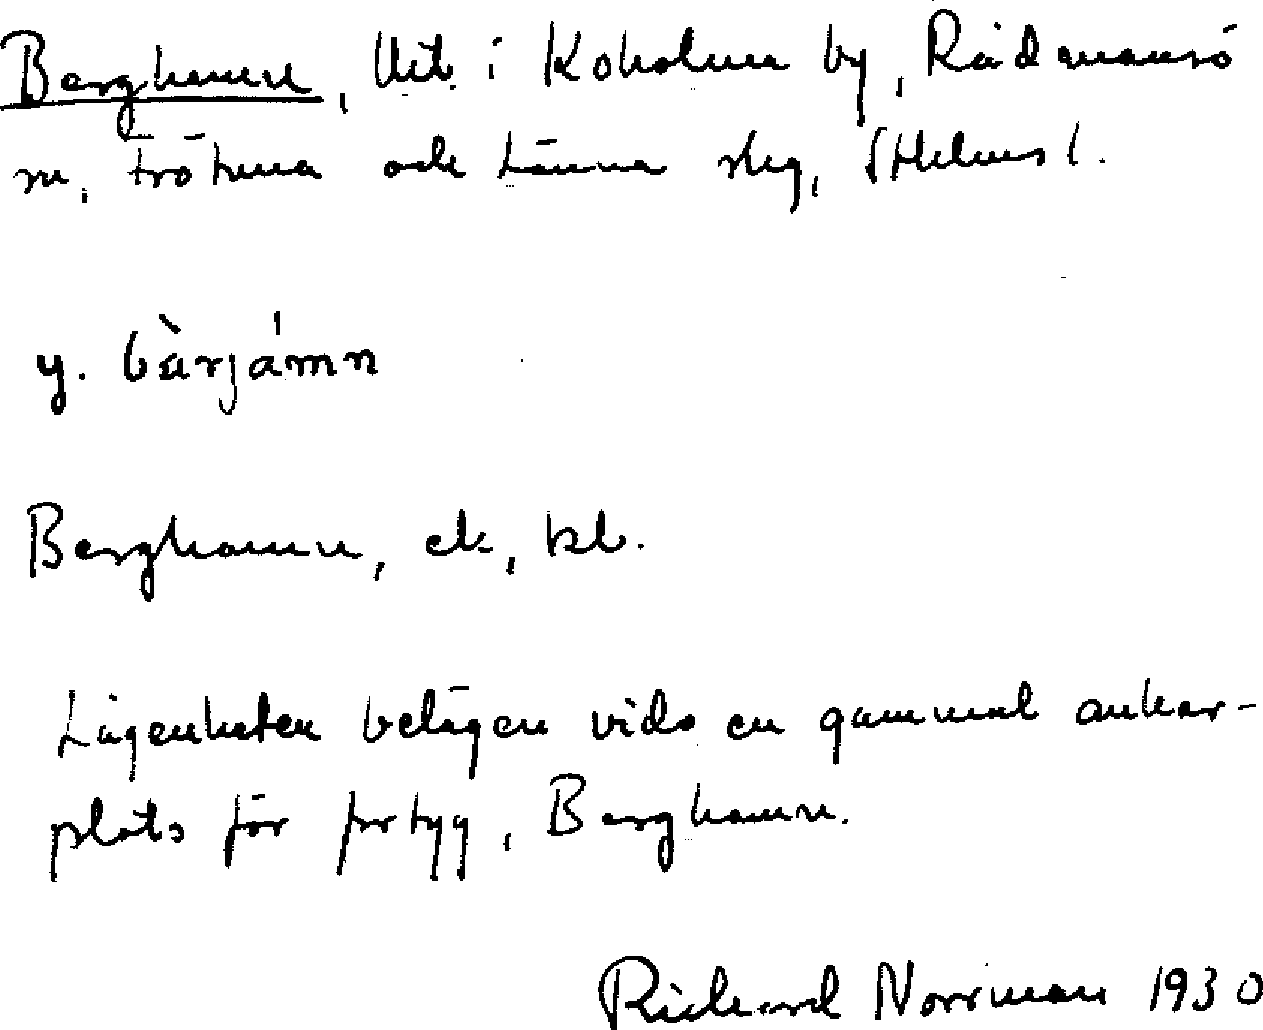 Berghamn, lht. i Koholma by, Rådmansö
sn, Frötuna och Länna slg, Sthlms l.
y. bàrjámn
Berghamn, ek, kbl.
Lägenheten belägen vid en gammal ankar-
plats för fartyg, Berghamn.
Richard Norrman 1930